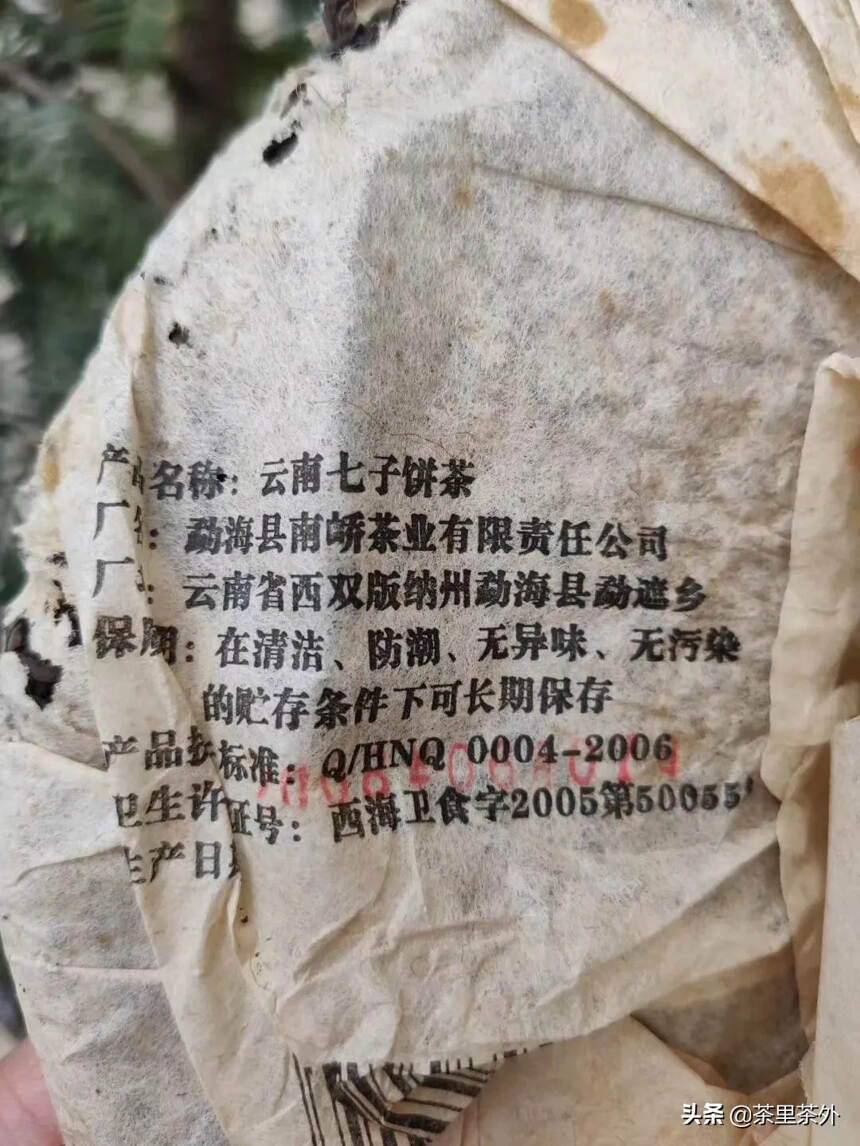 产品名称：云南七子饼茶
厂名：勐海县南峤茶业有限责任公司
厂　：云南省西双版纳州勐海县勐遮乡
保　：在清洁、防潮、无异味、无污染
的贮存条件下可长期保存
产品　标准：Q/HNQ 0004-2006
卫生许证号：西海卫食字2005第50055
生产日期
头条 @茶里茶外